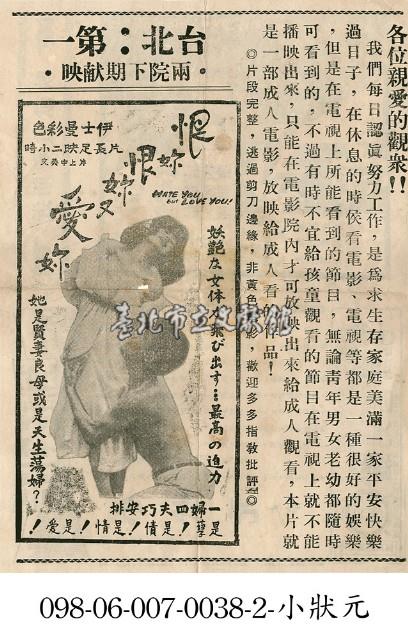 各位親愛的觀衆!!
我們每日認眞努力工作，是爲求生存家庭美滿一家平安快樂
過日子，在休息的時侯看電影、電視等都是一種很好的娛樂
，但是在電視上所能看到的節目，無論靑年男女老幼都隨時
可看到的，不過有時不宜給孩童觀看的節目在電視上就不能
播映出來，只能在電影院內才可放映出來給成人觀看，本片就
是一部成人電影，放映給成人看的作品！
◎片段完整，逃過剪刀邊緣，非黃色電影 歡迎多多指敎批評◎
台北：第一
·兩院下期献映·
伊士曼彩色
片長足映二小時
片上中英文
恨妳恨妳又愛妳
HATE YOU
but LOVE YOU!
妖艶な女体が飛び出す…最高の迫力
她是賢妻良母或是天生蕩婦？
一婦四夫巧安排
是孽！是債！是情！是愛！
臺北市立文獻館
098-06-007-0038-2-小狀元